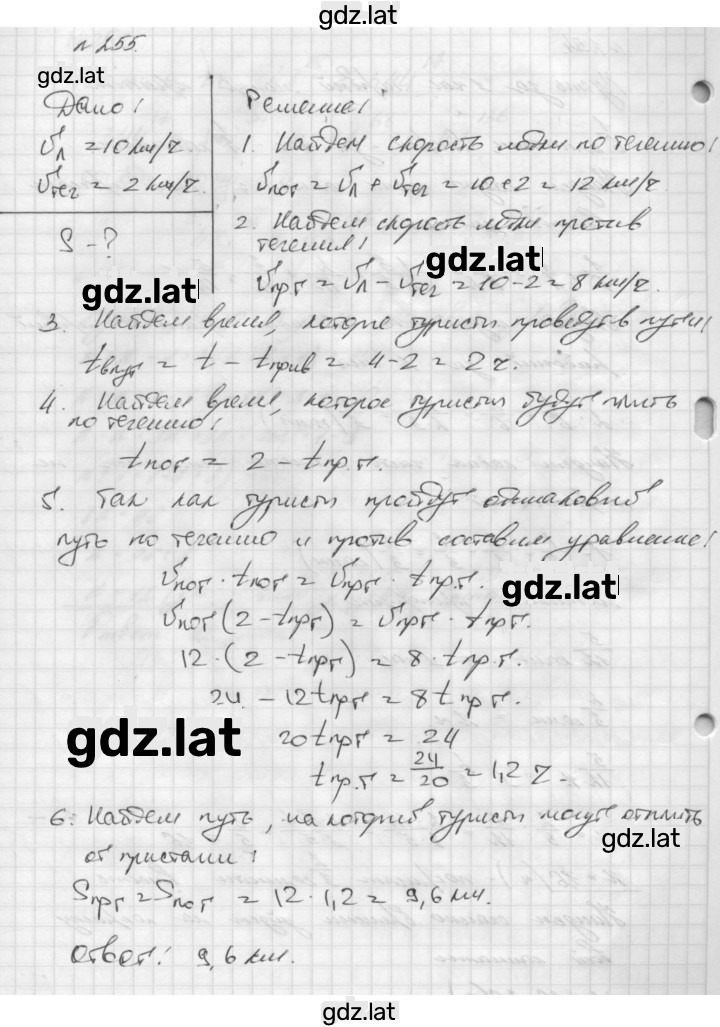 gdz.lat
n 255.
gdz.lat
Дано:
Решение:
υл = 10 км/ч.
υтег = 2 км/ч.
S - ?
1. Найдем скорость лодки по течению:
υпог = υл + υтег = 10 + 2 = 12 км/ч.
2. Найдем скорость лодки против
течения:
gdz.lat
υпрг = υл - υтег = 10 - 2 = 8 км/ч.
gdz.lat
3. Найдем время, которе туристы проведут в пути:
tв пут = t - tприв = 4 - 2 = 2 ч.
4. Найдем время, которое туристы будут плыть
по течению:
tпог = 2 - tпр.г.
5. Так как туристы пройдут одинаковый
путь по течению и против составим уравнение:
υпог · tпог = υпрг · tпр.г.
gdz.lat
υпог (2 - tпрг) = υпрг · tпрг.
12 · (2 - tпрг) = 8 · tпр.г.
24 - 12 tпрг = 8 tпрг.
gdz.lat
20 tпрг = 24
tпр.г = 24/20 = 1,2 ч.
6. Найдем путь, на который туристы могут отплыть
gdz.lat
от пристани:
Sпрг = Sпог = 12 · 1,2 = 9,6 км.
Ответ: 9,6 км.
gdz.lat